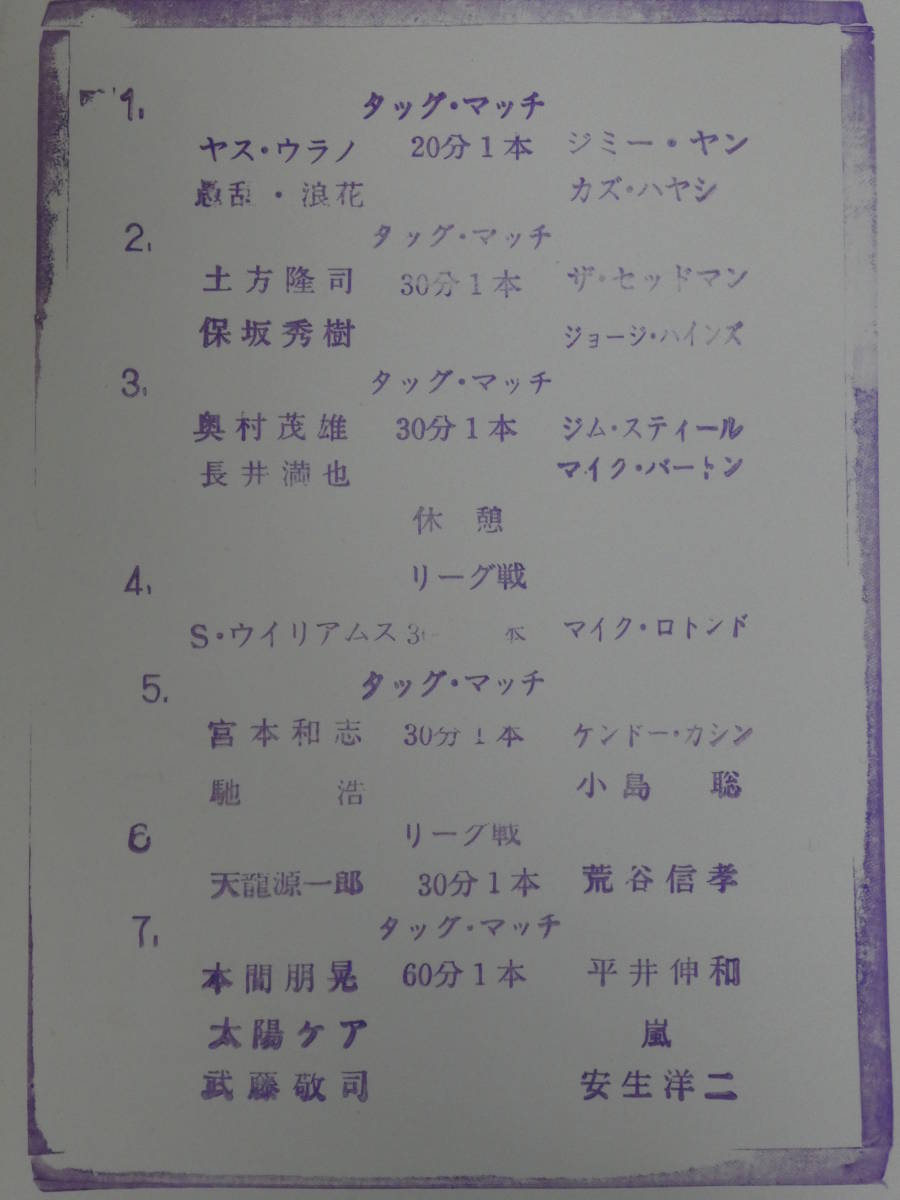 1. タッグ・マッチ
ヤス・ウラノ 20分1本 ジミー・ヤン
愚乱・浪花 カズ・ハヤシ
2. タッグ・マッチ
土方隆司 30分1本 ザ・セッドマン
保坂秀樹 ジョージ・ハインズ
3. タッグ・マッチ
奥村茂雄 30分1本 ジム・スティール
長井満也 マイク・バートン
休憩
4. リーグ戦
S・ウイリアムス 30 本 マイク・ロトンド
5. タッグ・マッチ
宮本和志 30分1本 ケンドー・カシン
馳浩 小島聡
6 リーグ戦
天龍源一郎 30分1本 荒谷信孝
7. タッグ・マッチ
本間朋晃 60分1本 平井伸和
太陽ケア 嵐
武藤敬司 安生洋二